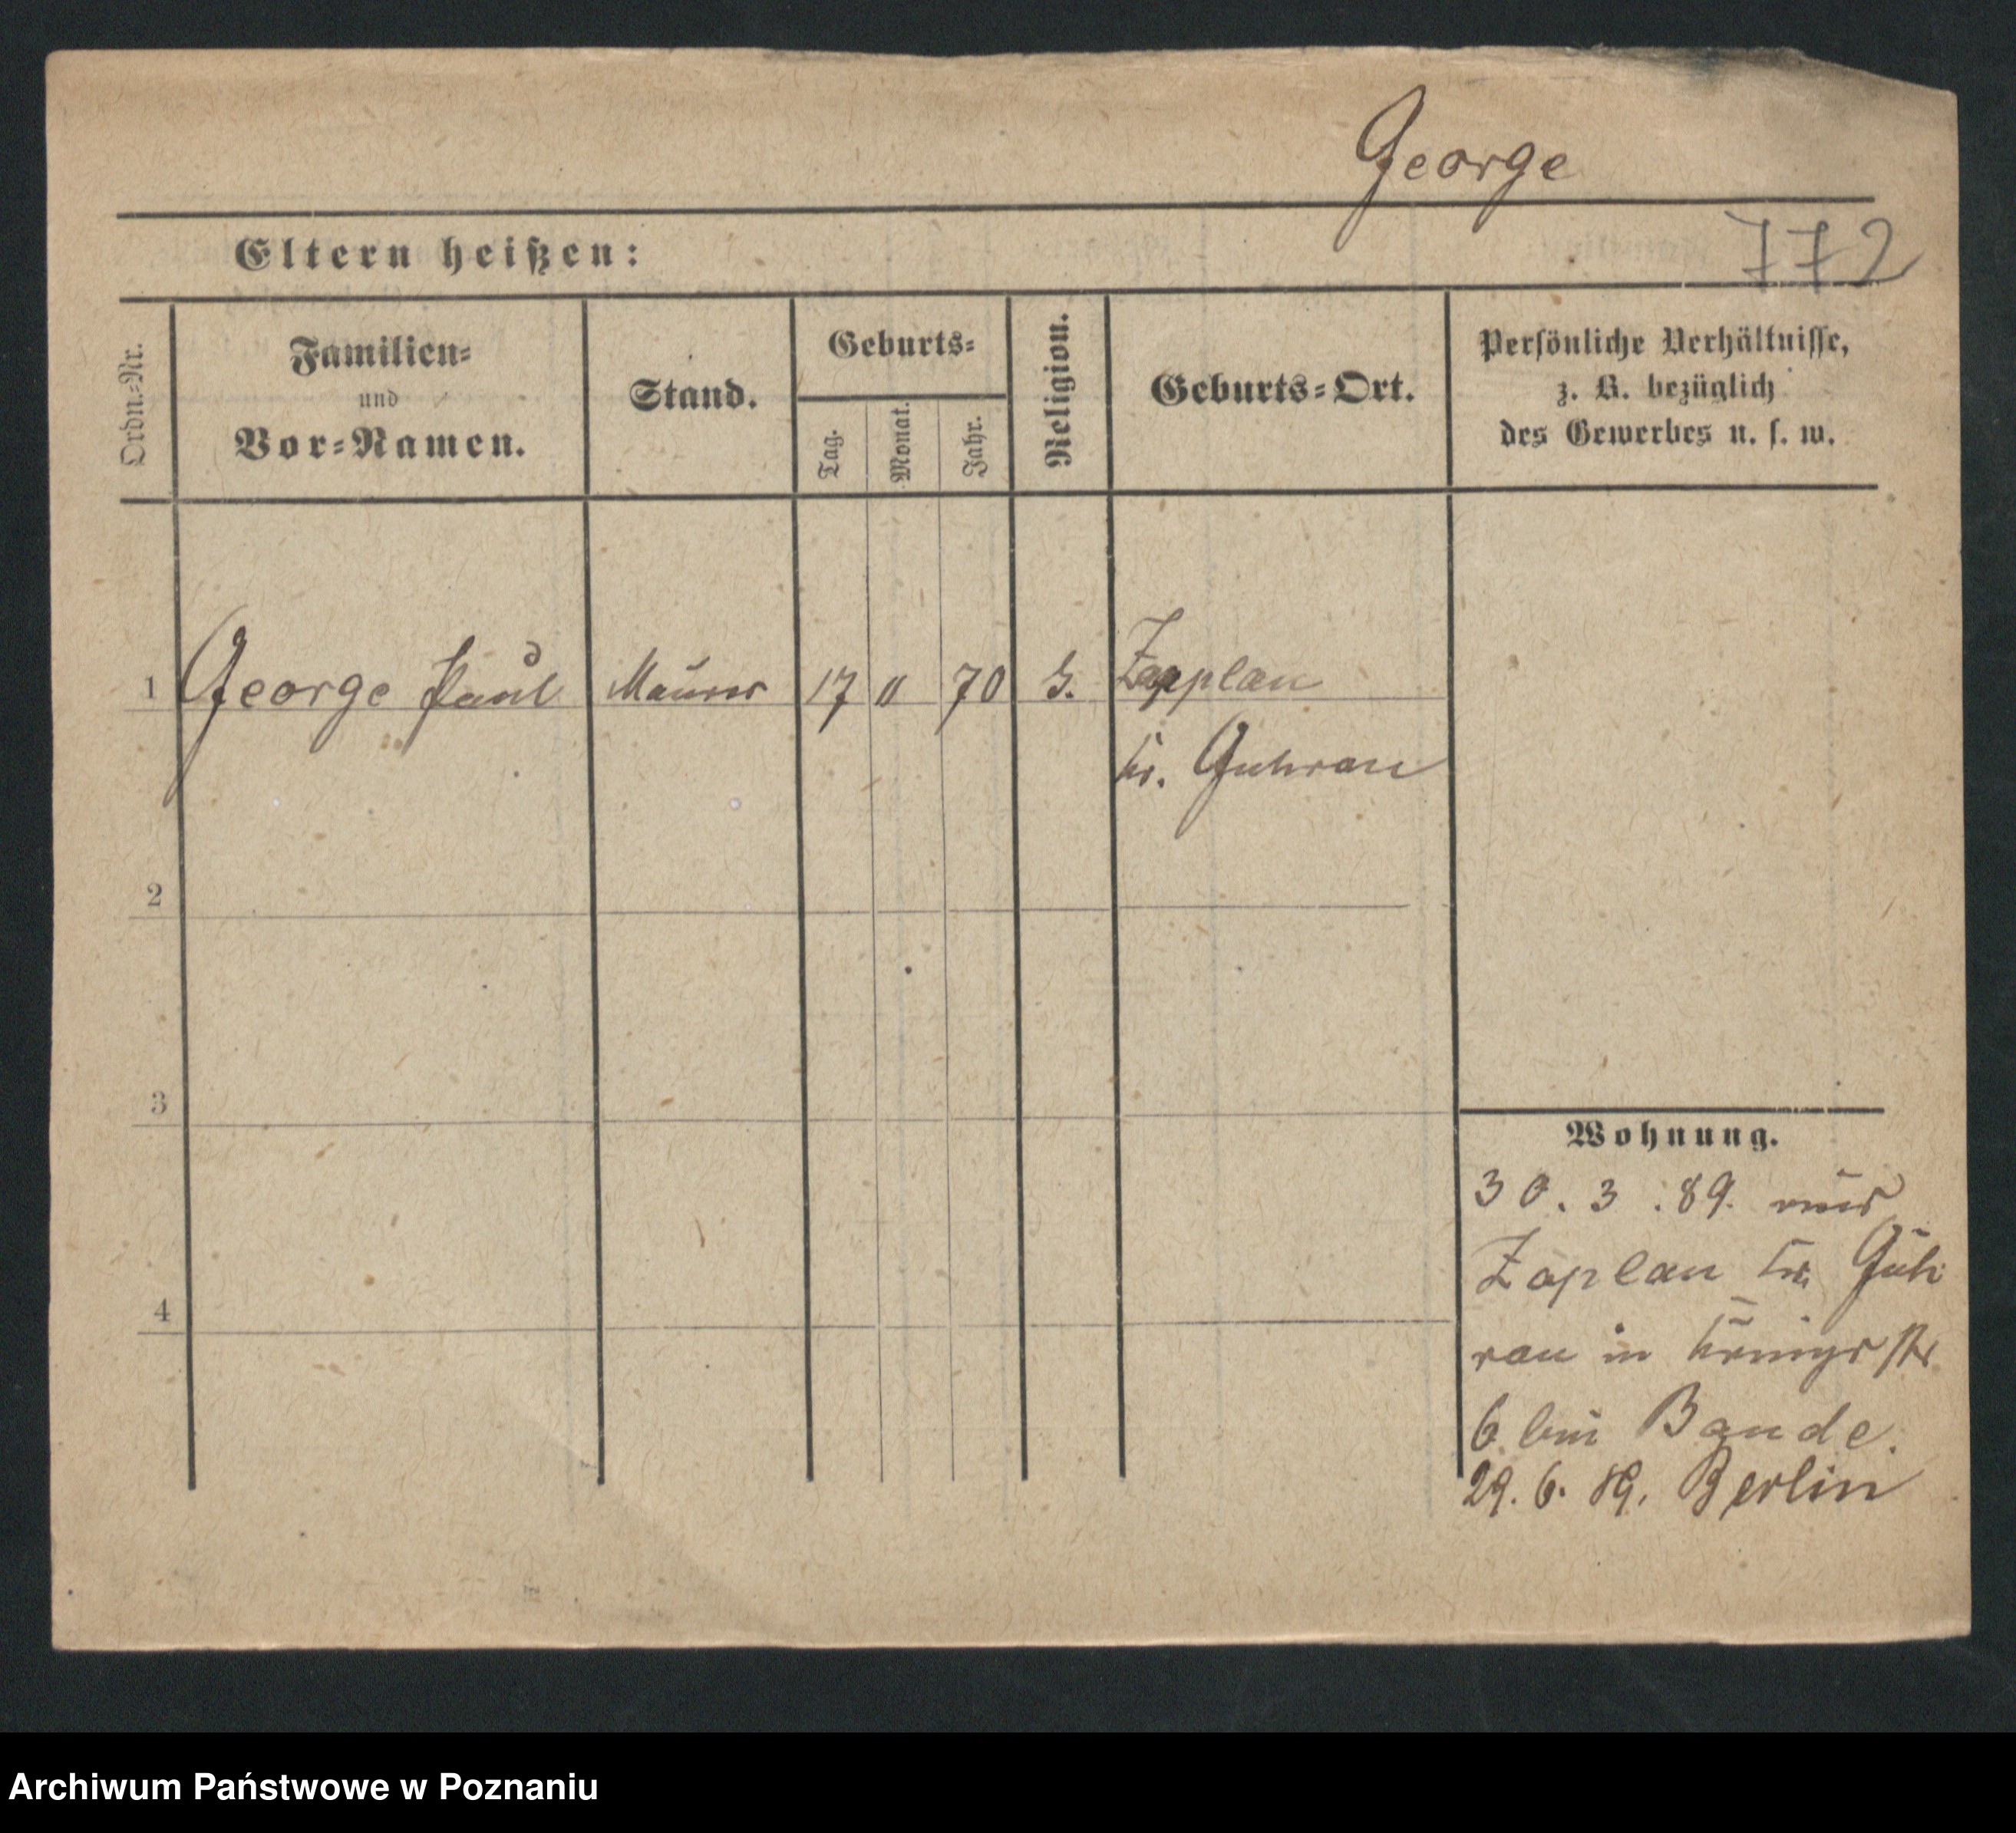 George
Eltern heißen:
772
Ordn.=Nr.
Familien=
und
Vor=Namen.
Stand.
Geburts=
Tag.
Monat.
Jahr.
Religion.
Geburts=Ort.
Persönliche Verhältnisse,
z. B. bezüglich
des Gewerbes u. s. w.
1 George Paul Maurer 17 11 70 Zapplau
Kr. Guhrau
2
3
4
Wohnung.
30.3.89. aus
Zaplau Kr. Guh
rau in Königsstr
6 bei Baude.
29.6.89. Berlin
Archiwum Państwowe w Poznaniu